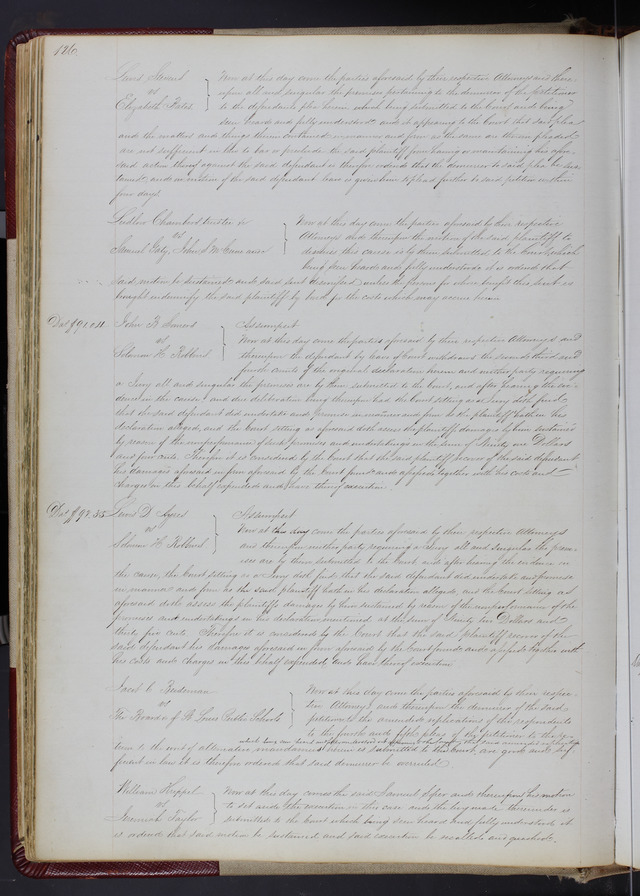 126
Now at this day came the parties aforesaid by their respective Attorneys and there-
vs upon all and singular the premises pertaining to the demurrer of the plaintiff
Elizabeth to the defendants plea herein which being submitted to the Court and being
seen heard and fully understood and it appearing to the Court that said plea
and the matters and things therein contained in manner and form as the same are therein pleaded
are not sufficient in law to bar or preclude the said plaintiff from having or maintaining his afore-
said action thereof against the said defendant it is therefore ordered that the demurrer to said plea be sus-
tained, and on motion of the said defendant leave is given him to plead further to said petition within
four days.
Ludlow Chambers trustee &c Now at this day came the parties aforesaid by their respective
vs Attorneys and thereupon the motion of the said plaintiff to
Samuel Gaty, John S. McCune dismiss this cause is by them submitted to the Court which
being seen heard and fully understood it is ordered that
said motion be sustained and said suit dismissed unless the person for whose benefit this suit is
brought indemnify the said plaintiff by bond for the costs which may accrue herein
Das $91.05 John Assumpsit
vs Now at this day came the parties aforesaid by their respective Attorneys and
Solomon H. Robbins thereupon the defendant by leave of Court withdraws the second third and
fourth counts of the original declaration herein and neither party requiring
a Jury all and singular the premises are by them submitted to the Court, and after hearing the evi-
dence in the cause and due deliberation being thereupon had the Court sitting as a Jury doth find
that the said defendant did undertake and promise in manner and form as the plaintiff hath in his
declaration alleged, and the Court sitting as aforesaid doth assess the plaintiffs damages by him sustained
by reason of the nonperformance of said promises and undertakings at the sum of Ninety one Dollars
and five cents. Therefore it is considered by the Court that the said plaintiff recover of the said defendant
his damages aforesaid in form aforesaid by the Court found and assessed together with his costs and
charges in this behalf expended and have thereof execution
Das $92.35 D. Ayres Assumpsit
vs Now at this day came the parties aforesaid by their respective Attorneys
Solomon H. Robbins and thereupon neither party requiring a Jury all and singular the prem-
ises are by them submitted to the Court and after hearing the evidence in
the cause, the Court sitting as a Jury doth find that the said defendant did undertake and promise
in manner and form as the said plaintiff hath in his declaration alleged, and the Court sitting as
aforesaid doth assess the plaintiffs damages by him sustained by reason of the nonperformance of the
promises and undertakings in his declaration mentioned at the sum of Ninety two Dollars and
thirty five cents Therefore it is considered by the Court that the said plaintiff recover of the
said defendant his damages aforesaid in form aforesaid by the Court found and assessed together with
his costs and charges in this behalf expended and have thereof execution
Jacob C. Now at this day came the parties aforesaid by their respec-
vs tive Attorneys and thereupon the demurrer of the said
The Board of St Louis Public Schools petitioner to the amended replications of the respondents
to the fourth and fifth pleas of the petitioner to the re-
turn to the writ of alternative mandamus herein is submitted to the Court, are good and suf-
ficient in law it is therefore ordered that said demurrer be overruled.
William Now at this day comes the said Samuel and thereupon his motion
vs to set aside the execution in this case and the levy made thereunder is
Jeremiah Taylor submitted to the Court which being seen heard and fully understood it
is ordered that said motion be sustained and said execution be recalled and quashed.